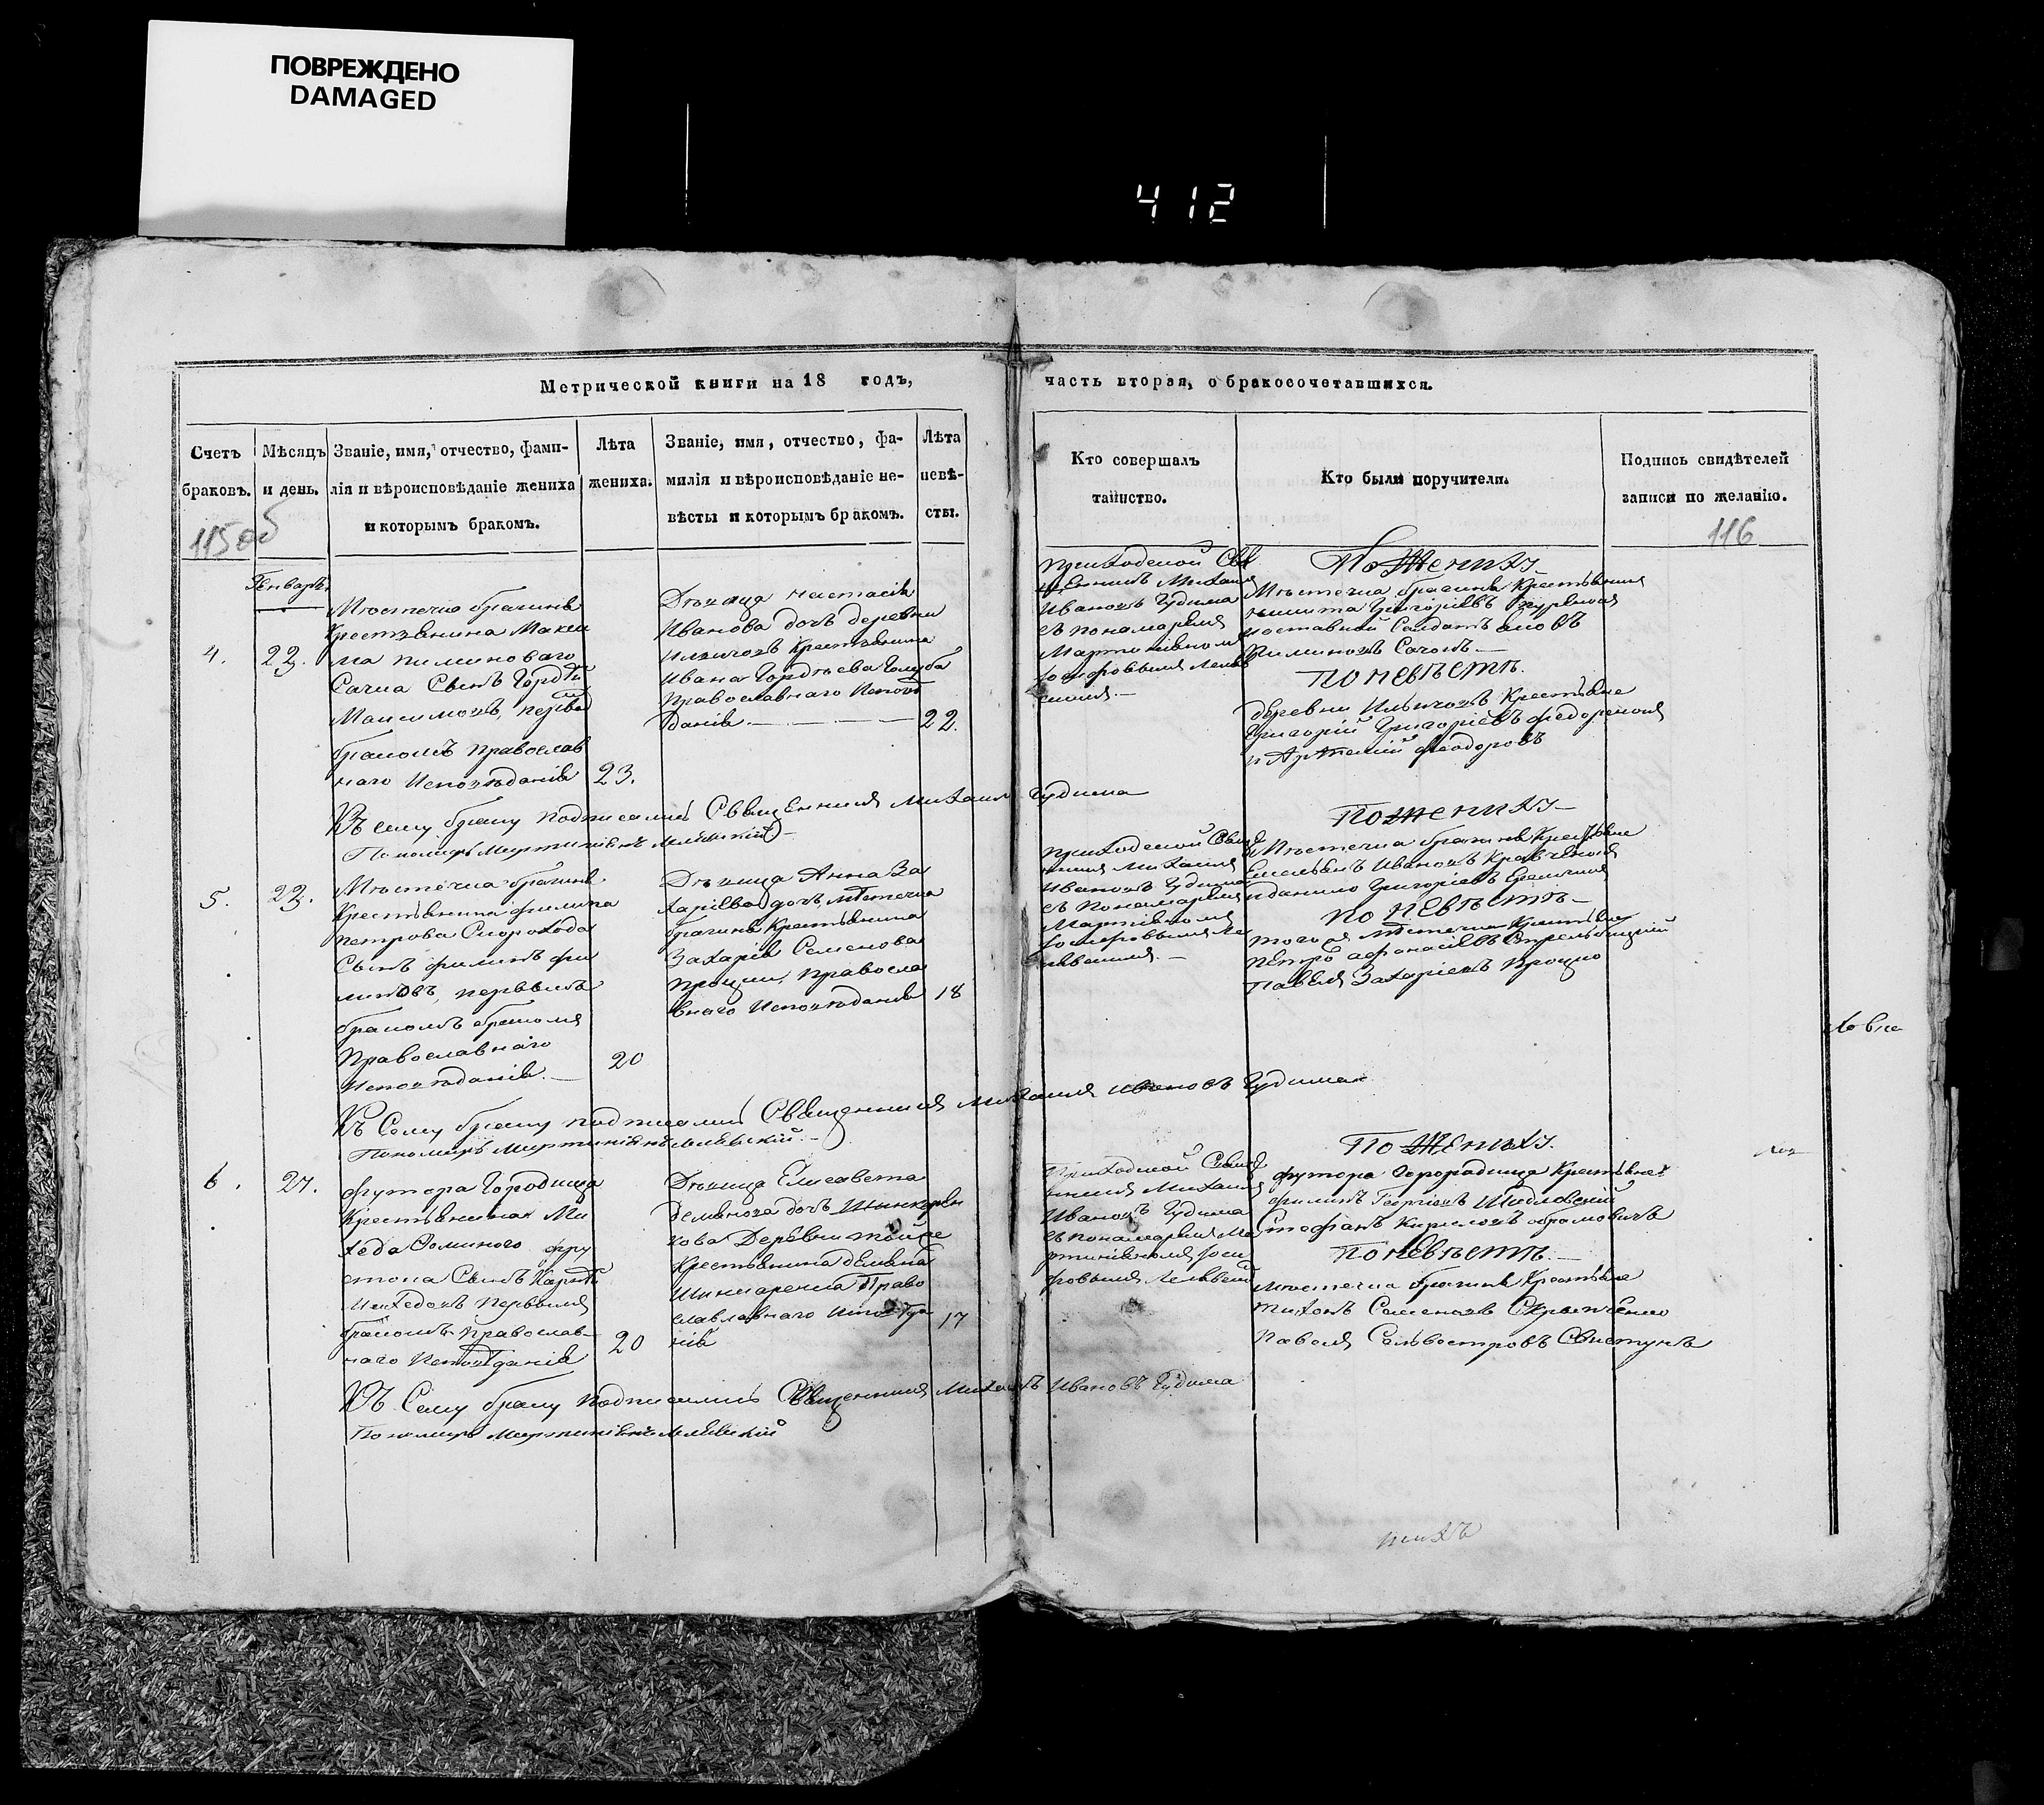 ПОВРЕЖДЕНО
DAMAGED
412
Метрической книги на 18 годъ,
часть вторая, о бракосочетавшихся.
Счетъ браковъ.
Мѣсяцъ и день.
Званіе, имя, отчество, фами-
лія и вѣроисповѣданіе жениха
и которымъ бракомъ.
Лѣта
жениха.
Званіе, имя, отчество, фа-
милія и вѣроисповѣданіе не-
вѣсты и которымъ бракомъ.
Лѣта
невѣ-
сты.
Кто совершалъ
таинство.
Кто были поручители.
Подпись свидѣтелей
записи по желанію.
115об
116
Генварь
4.
22.
Мѣстечка Брагина
Крестьянина Макси
ма Пиминоваго
Сачка Сынъ Гордѣй
Максимовъ, первы
бракомъ православ
наго Исповѣданія
23.
Дѣвица Настасія
Иванова дочь деревни
Ильичовъ Крестьянина
Ивана Гордѣева Голуба
Православнаго Исповѣ
данія
22.
Приходской Свя
щенникъ Михаил
Ивановъ Гудима
съ пономаремъ
По Жениху
Мѣстечка Брагина Крестьянинъ
Никита Григоріевъ
Пиминовъ Сачокъ.
По невѣстѣ.
деревни Ильичовъ Крестьяне
Григорій Григоріевъ Федоренко
и Артемій Феодоровъ
Къ сему браку подписались Священникъ Михаилъ Гудима
5.
22.
Мѣстечка Брагина
Крестьянина Филипа
Петрова Скорохода
Сынъ Филипъ Фи
липовъ, первымъ
бракомъ
Православнаго
Исповѣданія.
20
Дѣвица Анна За
харіева дочь мѣстечка
Брагина Крестьянина
Захарія Семенова
Процки, Правосла
внаго Исповѣданія
18
Приходской Свяще
нникъ Михаилъ
Ивановъ Гудима
съ Пономаремъ
По жениху
Мѣстечка Брагина Крестьяне
Емельянъ Ивановъ Кравченко
и Данило Григоріевъ
По невѣстѣ
того же Мѣстечка Крестьяне
Петро Афонасіевъ Стрельбицкій
Павелъ Захаріевъ Процко
Къ Сему браку подписались Священникъ Михаилъ Ивановъ Гудима
6.
27.
Футора Городища
Крестьянина Ми
хеда Фоминого Фру
стопа Сынъ Карпъ
Михедовъ первымъ
бракомъ Православ
наго Исповѣданія
20
Дѣвица Елисавета
Демьянова дочь Шинкорен
кова Деревни
Крестьянина Демьяна
Шинкаренка Право
славлавнаго Исповѣда
нія
17
Приходской Свяще
нникъ Михаилъ
Ивановъ Гудима
съ пономаремъ Ма
По Жениху.
Футора Горорадища Крестьяне
Филипъ Георгіевъ Шидловскій
Стефанъ Кириловъ Абрамовичъ
По невѣстѣ
Мѣстечка Брагина Крестьяне
Тихонъ Семеновъ Скрыпченко
Павелъ Сельвостровъ Свистунъ
Къ Сему браку подписались Священникъ Михаилъ Ивановъ Гудима